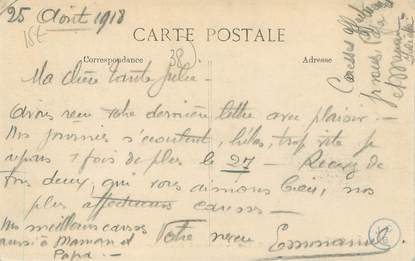 25 Août 1918
CARTE POSTALE
Correspondance
Adresse
38
Ma chère tante Julie.-
Avons reçu votre dernière lettre avec plaisir.-
Mes journées s'écoulent, hélas, trop vite je
repars 1 fois de plus le 27 - Recevez de
tous deux, qui vous aimons bien, nos
plus affectueuses caresses -
Mes meilleures caresses
aussi à Maman et
Papa.-
Votre neveu Emmanuel
Caresses